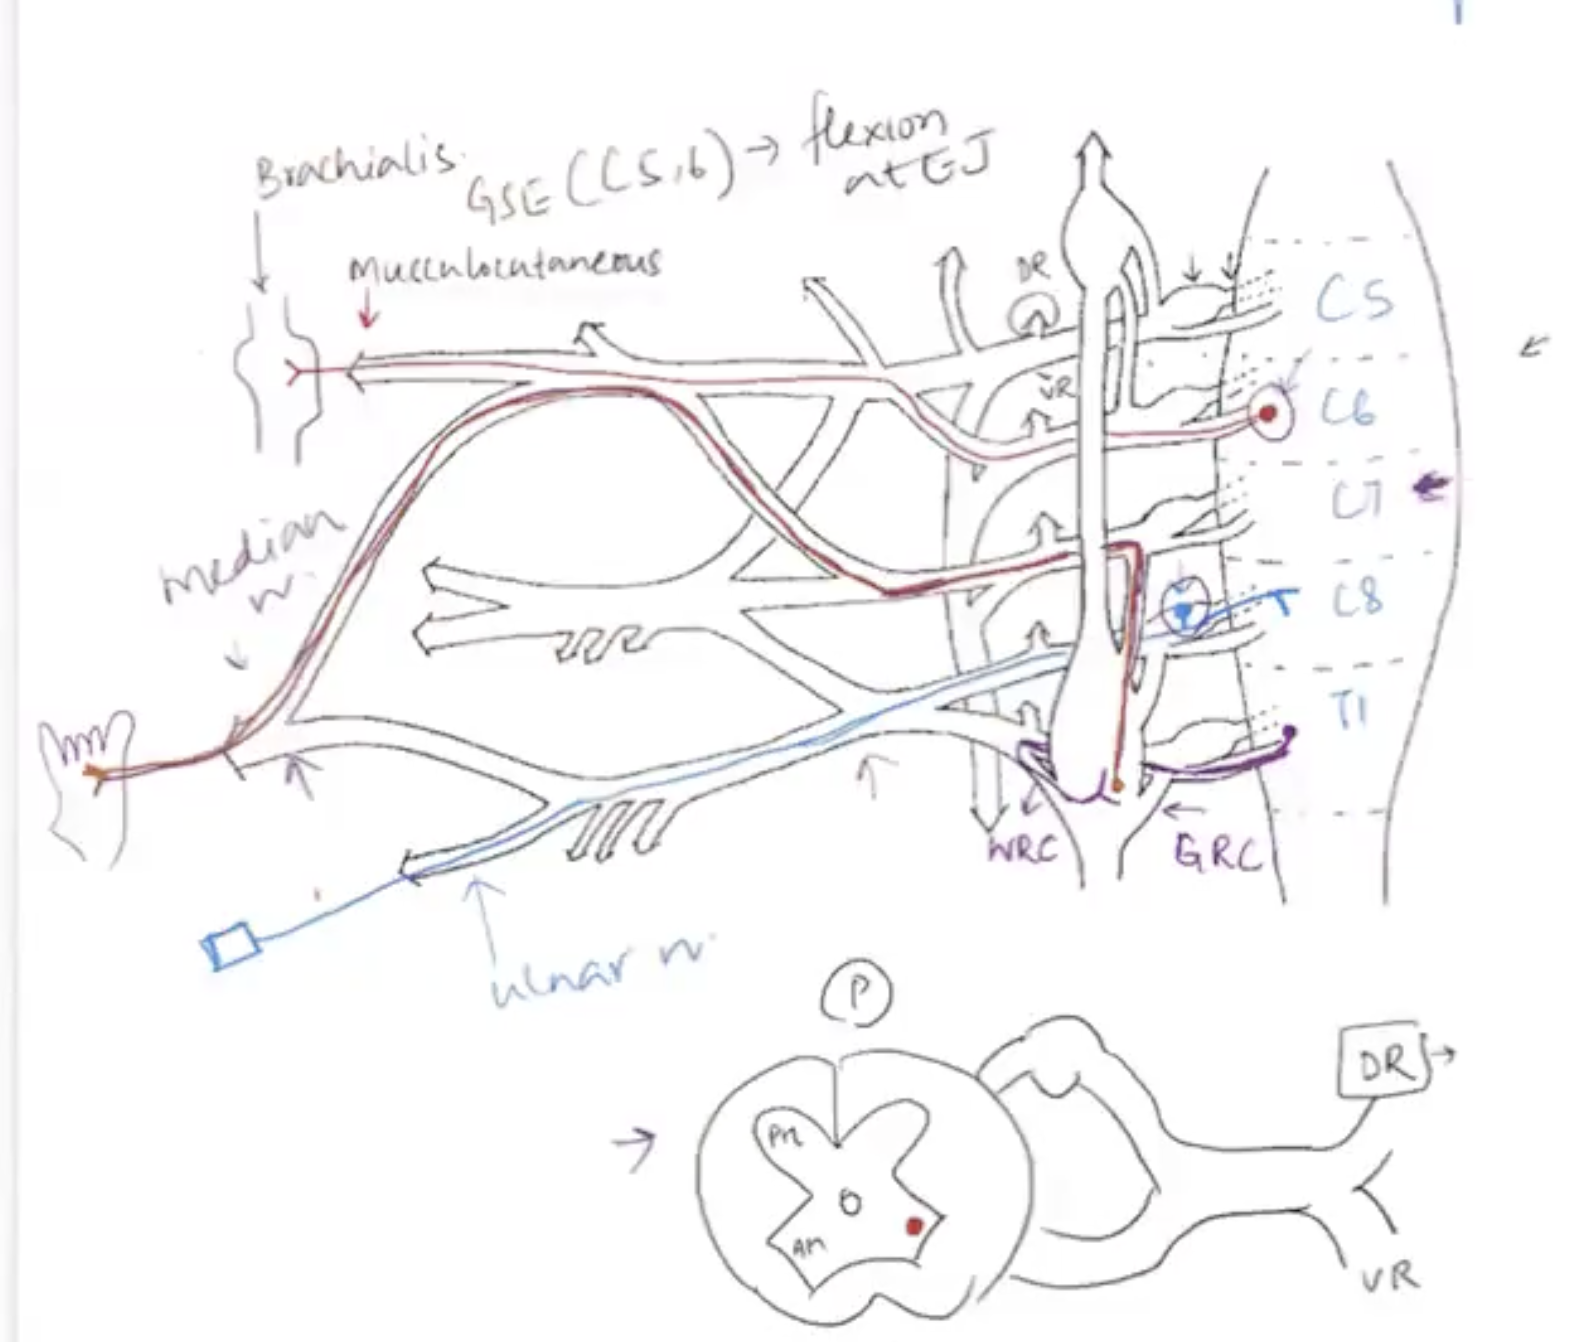 Brachialis.
GSE (C5,6) → flexion
at EJ
Musculocutaneous
DR
C5
VR
C6
C7
median
n.
C8
T1
WRC
GRC
ulnar n.
P
DR
PH
AH
VR